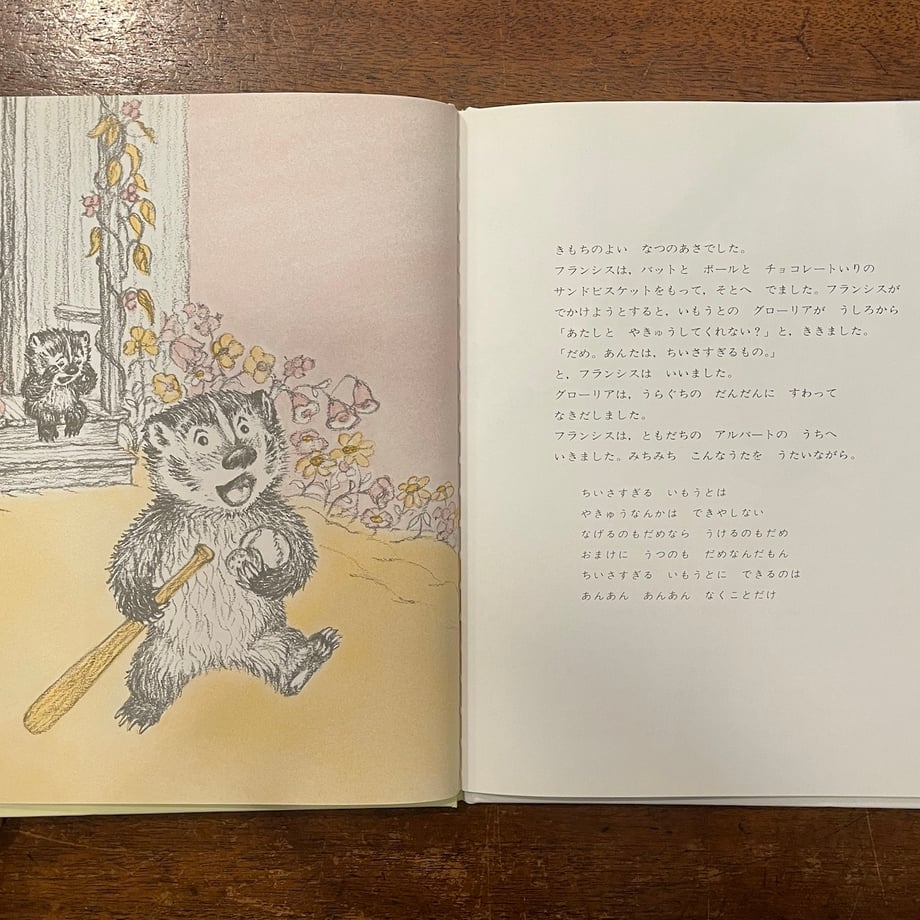 きもちのよい　なつのあさでした。
フランシスは，バットと　ボールと　チョコレートいりの
サンドビスケットをもって，そとへ　でました。フランシスが
でかけようとすると，いもうとの　グローリアが　うしろから
「あたしと　やきゅうしてくれない？」と，ききました。
「だめ。あんたは，ちいさすぎるもの。」
と，フランシスは　いいました。
グローリアは，うらぐちの　だんだんに　すわって
なきだしました。
フランシスは，ともだちの　アルバートの　うちへ
いきました。みちみち　こんなうたを　うたいながら。
ちいさすぎる　いもうとは
やきゅうなんかは　できやしない
なげるのもだめなら　うけるのもだめ
おまけに　うつのも　だめなんだもん
ちいさすぎる　いもうとに　できるのは
あんあん　あんあん　なくことだけ